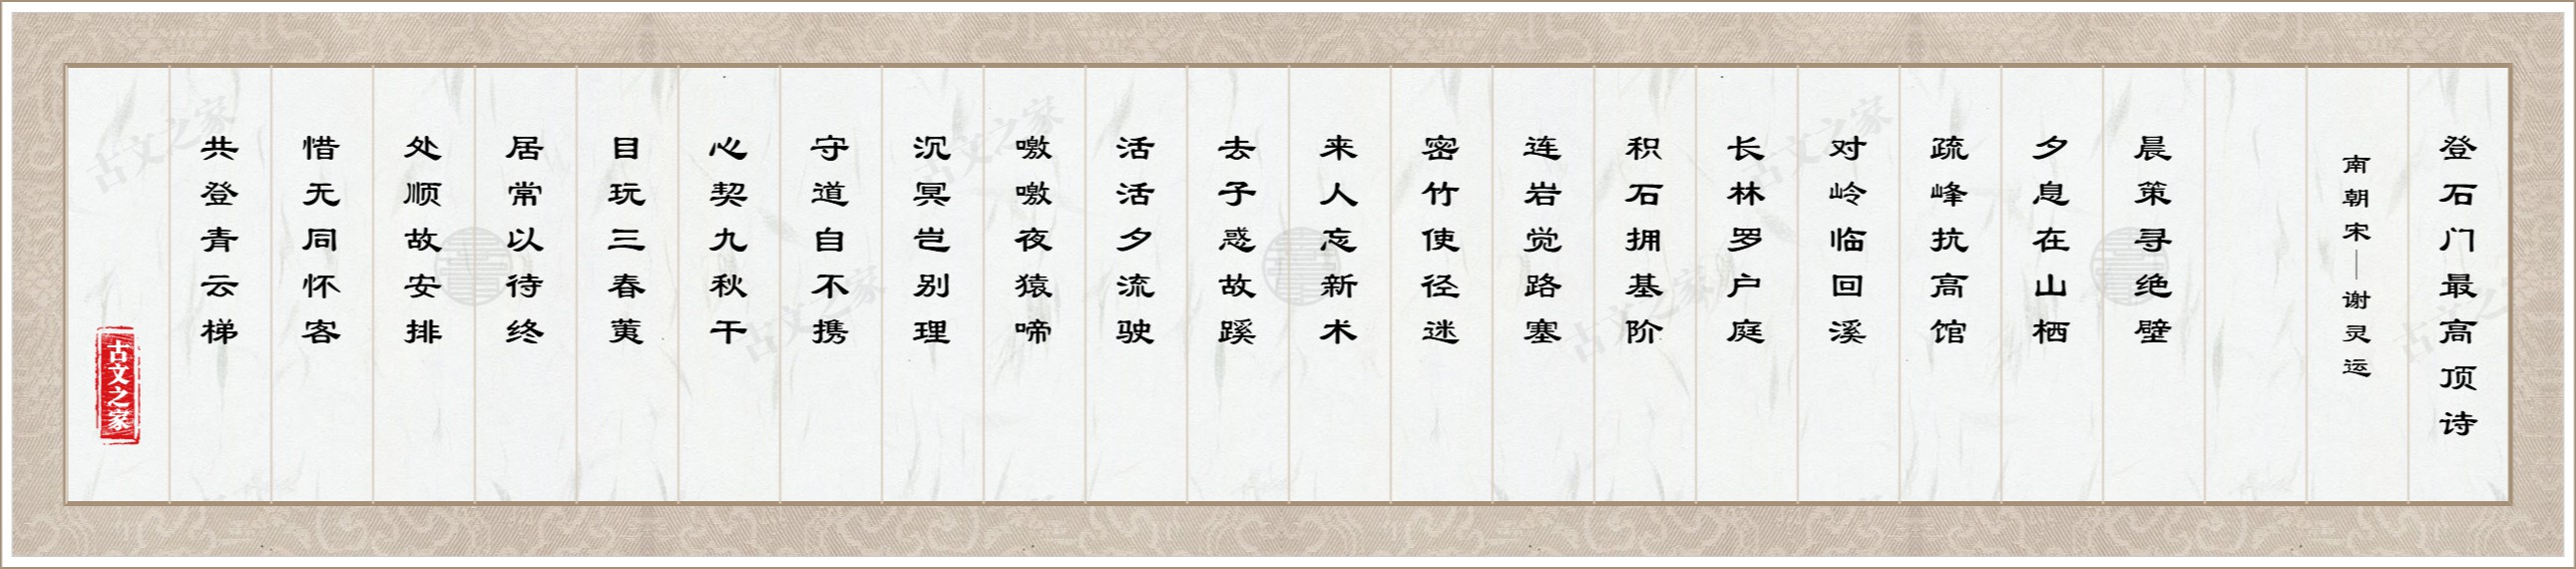 登石门最高顶诗
南朝宋｜谢灵运
晨策寻绝壁
夕息在山栖
疏峰抗高馆
对岭临回溪
长林罗户庭
积石拥基阶
连岩觉路塞
密竹使径迷
来人忘新术
去子惑故蹊
活活夕流驶
噭噭夜猿啼
沉冥岂别理
守道自不携
心契九秋干
目玩三春荑
居常以待终
处顺故安排
惜无同怀客
共登青云梯
古文之家